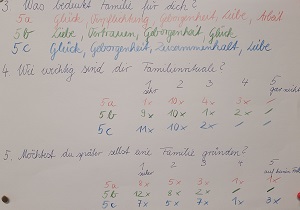 3. Was bedeutet Familie für dich?
5a Glück, Verpflichtung, Geborgenheit, Liebe, Arbeit
5b Liebe, Vertrauen, Geborgenheit, Glück
5c Glück, Geborgenheit, Zusammenhalt, Liebe
4. Wie wichtig sind dir Familienrituale?
1 2 3 4 5
sehr gar nicht
5a 1x 10x 4x 3x /
5b 9x 10x 1x 2x /
5c 11x 10x 2x / /
5. Möchtest du später selbst eine Familie gründen?
1 2 3 4 5
sehr auf keinen Fall
5a 8x 5x 3x 1x 1x
5b 12x 8x 2x / /
5c 7x 5x 7x 1x 3x